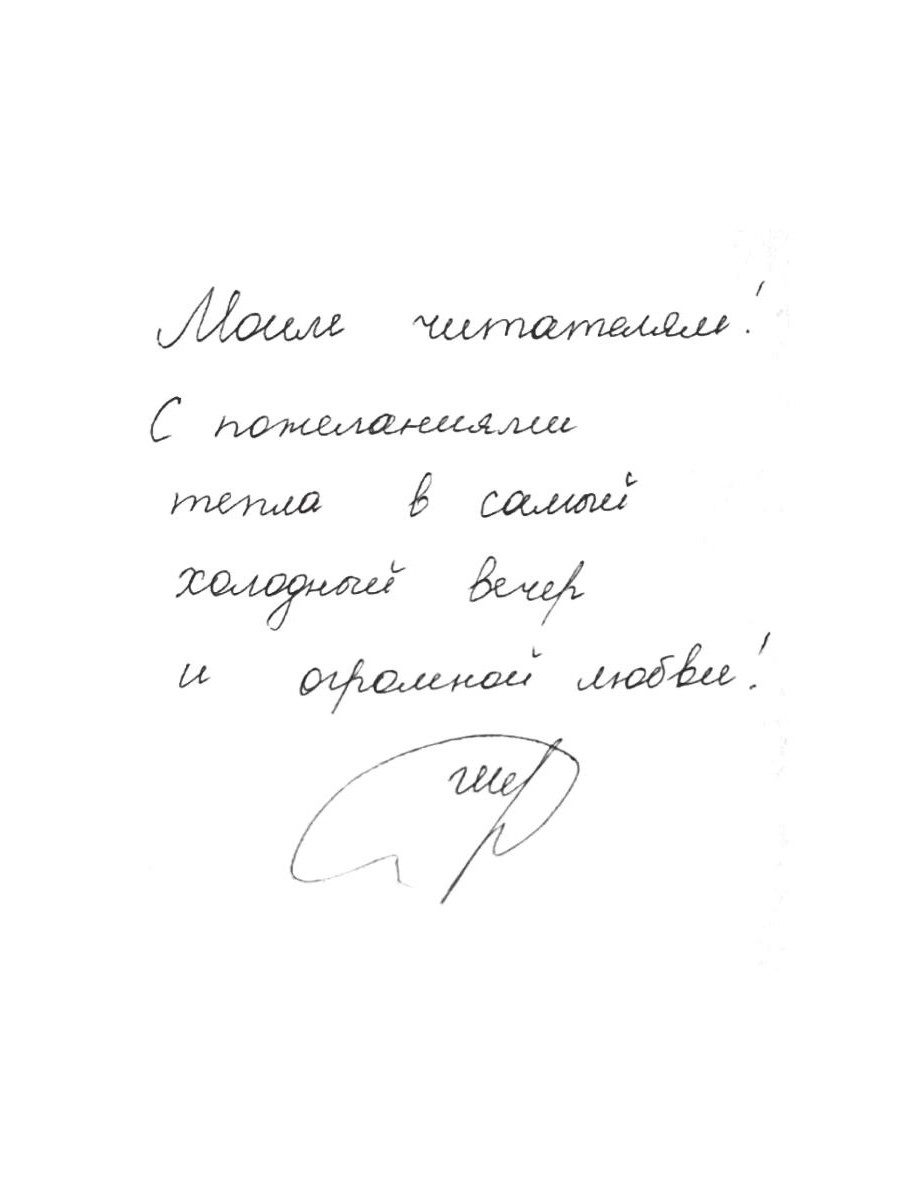 Моим читателям!
С пожеланиями
тепла в самый
холодный вечер
и огромной любви!